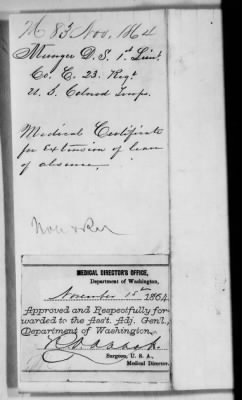 M 83 Nov, 1864
Munger D. S. 1st Lieut.
Co. C. 23. Regt
U. S. Colored Troops.
Medical Certificate
for Extension of leave
of absence.
MEDICAL DIRECTOR'S OFFICE,
Department of Washington,
November 15th 1864
Approved and Respectfully for-
warded to the Ass't. Adj. Genl.,
Department of Washington.
Surgeon, U. S. A.,
Medical Director.